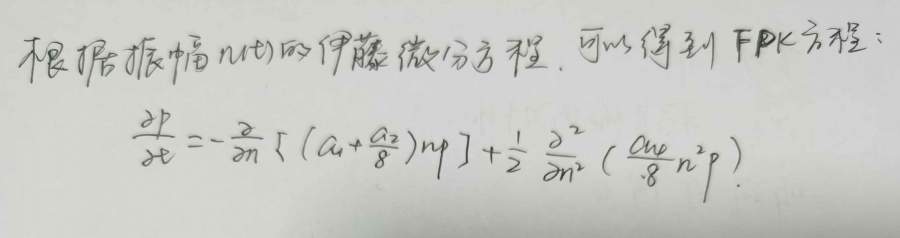 根据振幅n(t)的伊藤微分方程,可以得到FPK方程:
∂p/∂t = -∂/∂n [(a₁ + a₂/8)np] + 1/2 ∂²/∂n² (a₄/8 n²p).